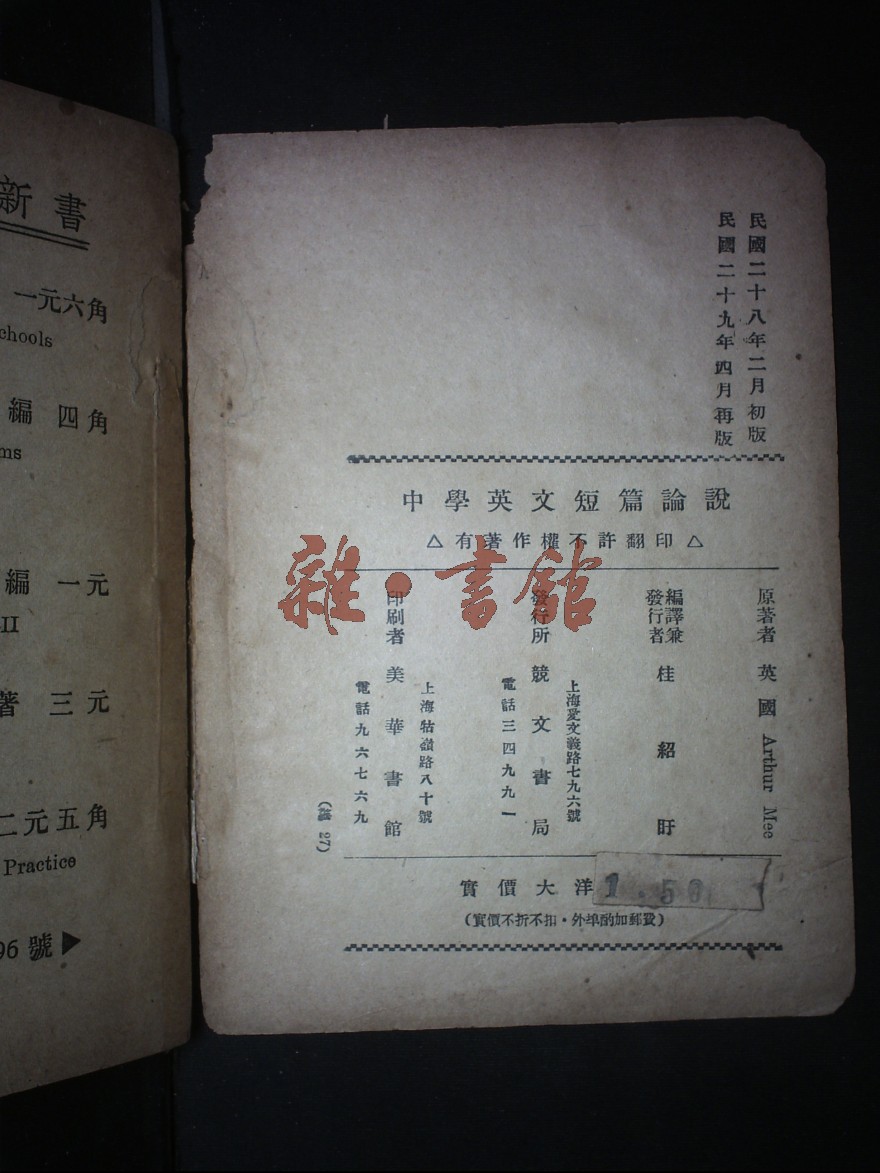 新書
一元六角
chools
編 四角
ms
編 一元
II
著 三元
二元五角
Practice
96 號▶
民國二十八年二月初版
民國二十九年四月再版
中學英文短篇論說
△有著作權不許翻印△
原著者 英國 Arthur Mee
編譯兼發行者 桂紹盱
發行所 競文書局
上海愛文義路七九六號
電話三四九九一
印刷者 美華書館
上海牯嶺路八十號
電話九六七六九
27)
實價大洋 1.50
(實價不折不扣·外埠酌加郵費)
雜·書館